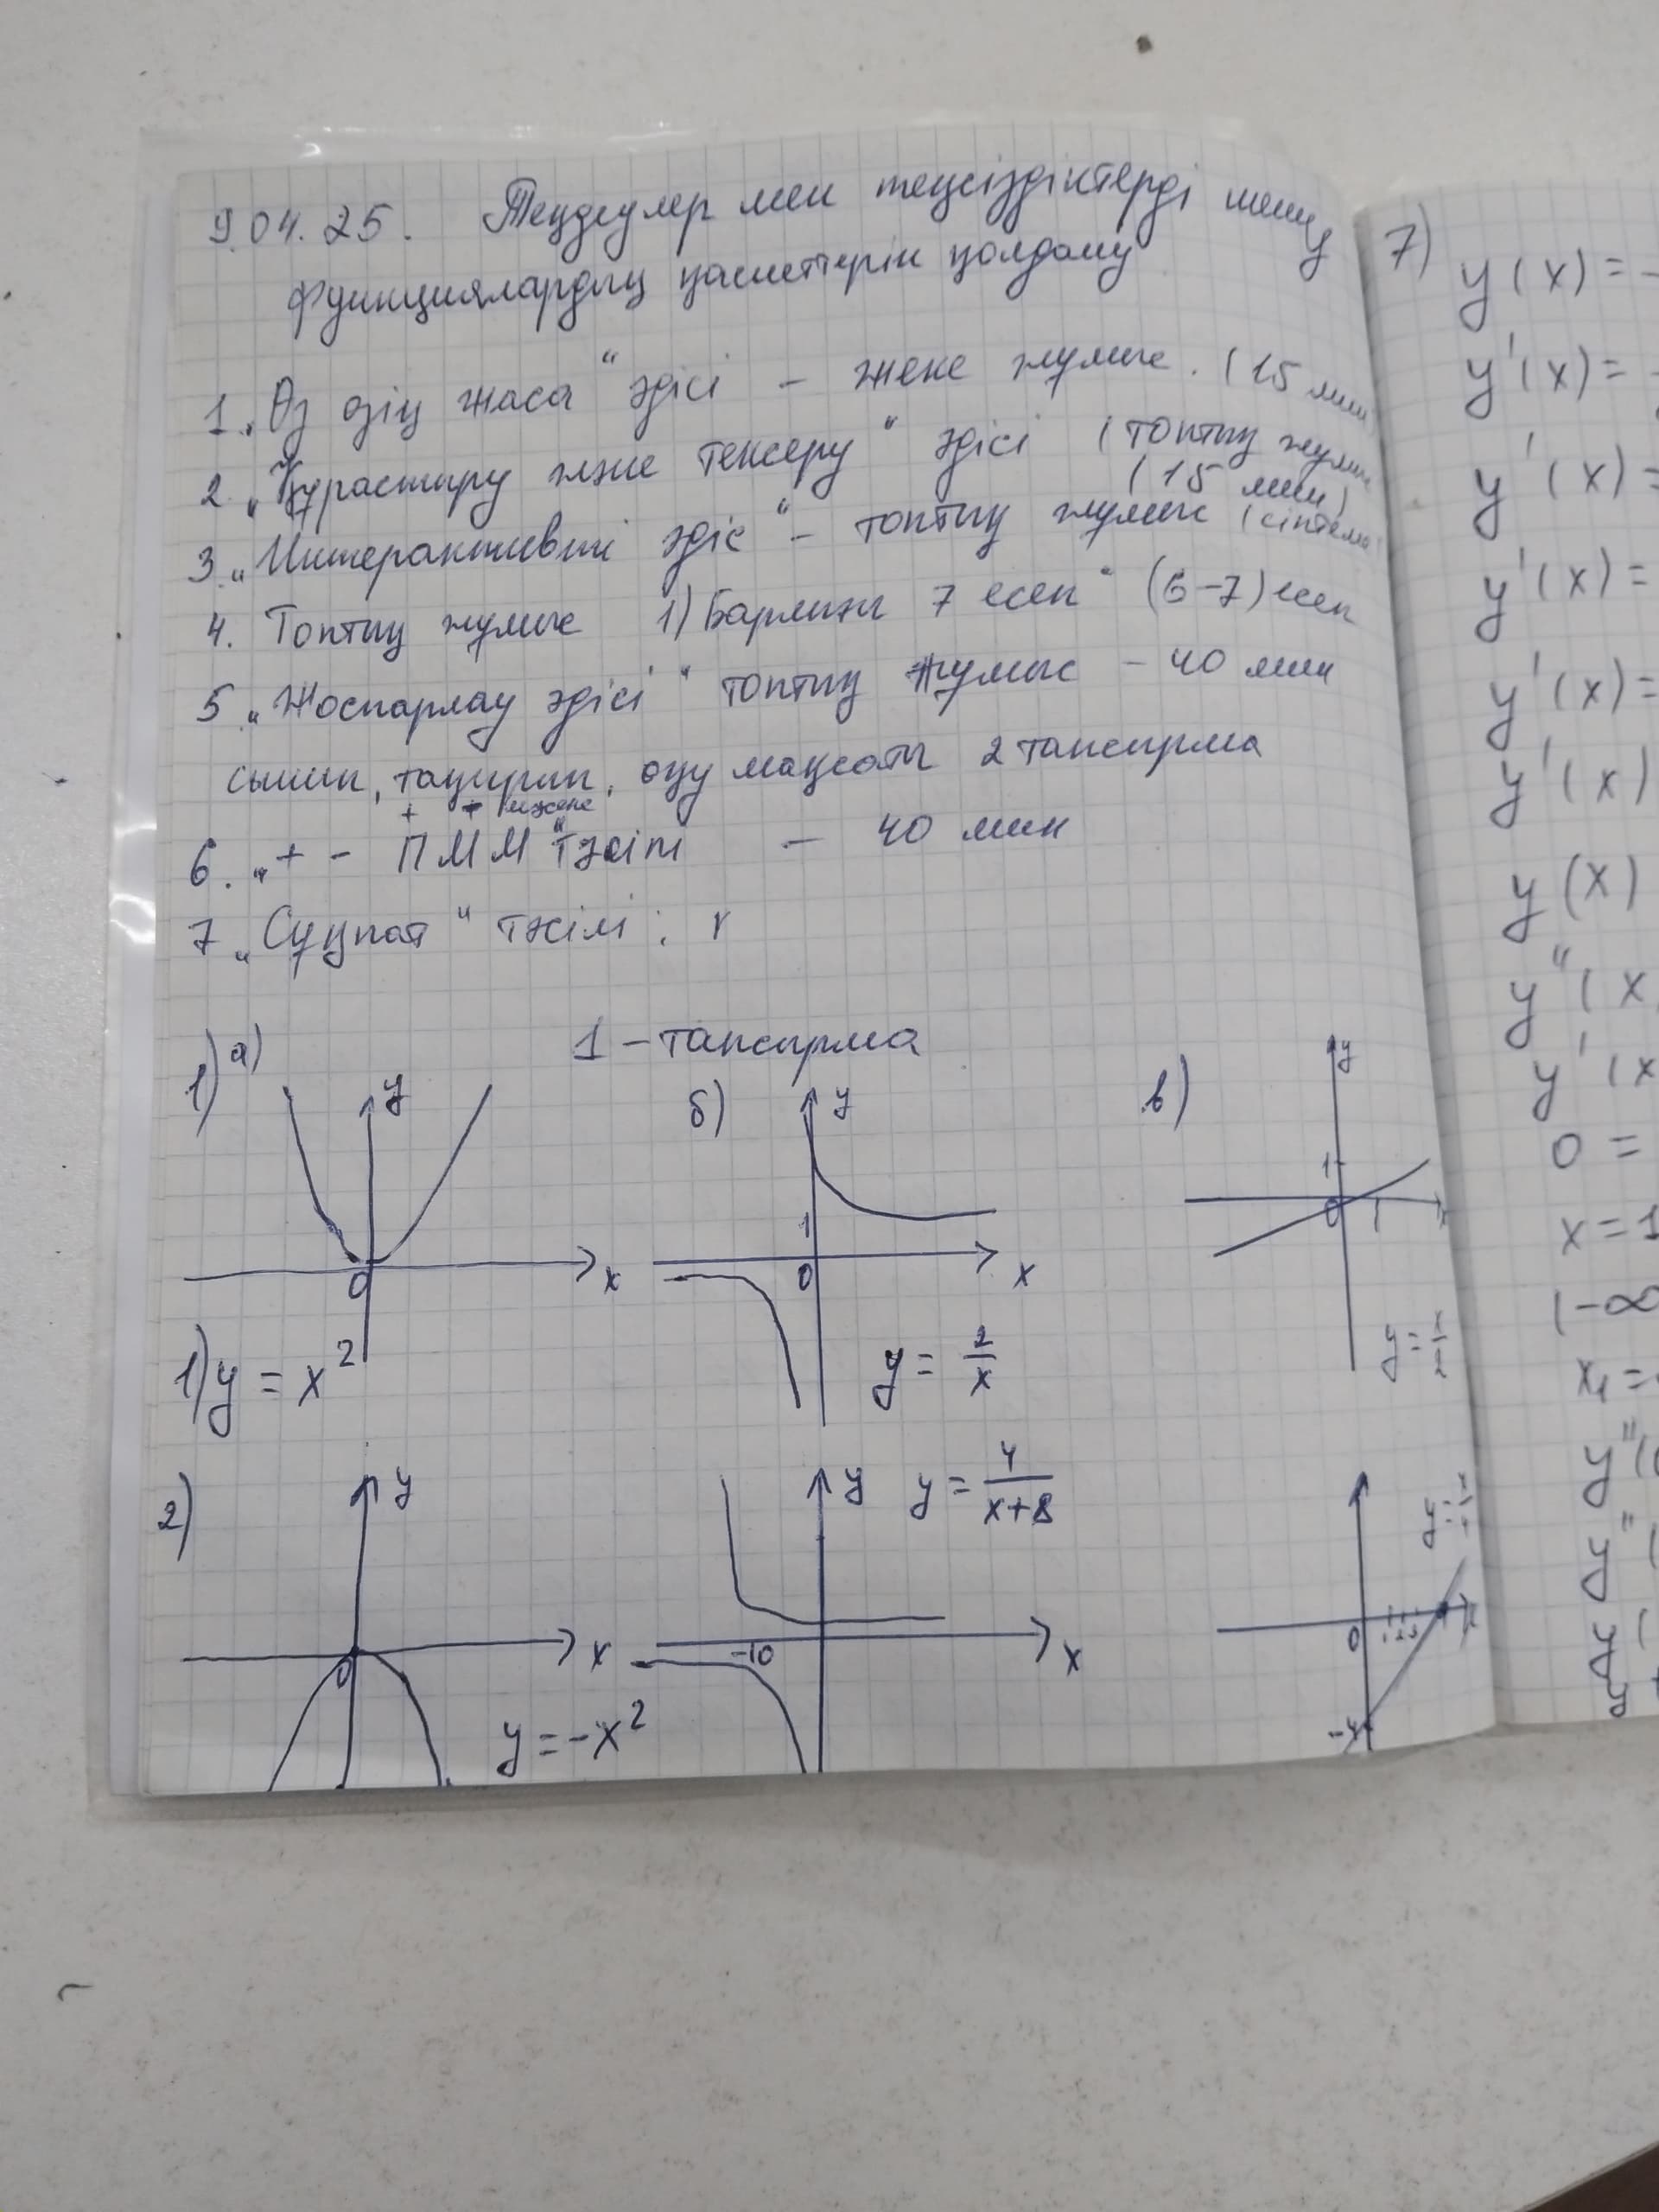 9.04.25. Теңдеулер мен теңсіздіктерді шешу
функциялардың қасиеттерін қолдану
1. „Өз өзің жаса" әдісі – жеке жұмыс. (15 мин
2. „Құрастыру және тексеру" әдісі (топтық жұмыс
(15 мин)
3. „Интерактивті әдіс" – топтық жұмыс (сілтеме
4. Топтық жұмыс 1) Барлығы 7 есеп (6-7) есеп
5. „Жоспарлау әдісі" топтық жұмыс – 40 мин
сынып, тақырып, оқу мақсаты 2 тапсырма
6. „+ - ПММ" тәсілі – 40 мин
7 „Сұқпат" тәсілі:
1 – тапсырма
1) а) y x 0
б) y 1 0 x
в) y 1 0 1 x
1) y = x²
y = 2/x
y = x/2
2) y x 0
y = -x²
y y = 4/(x+8)
-10 x
0 1 2 3
-4
7)
y(x) = -
y'(x) = -
y'(x) =
y'(x) =
y'(x) =
y'(x)
y(x)
y''(x
y'(x
0 =
x = 1
(-∞
x₁ =
y''(
y''(
y(
y